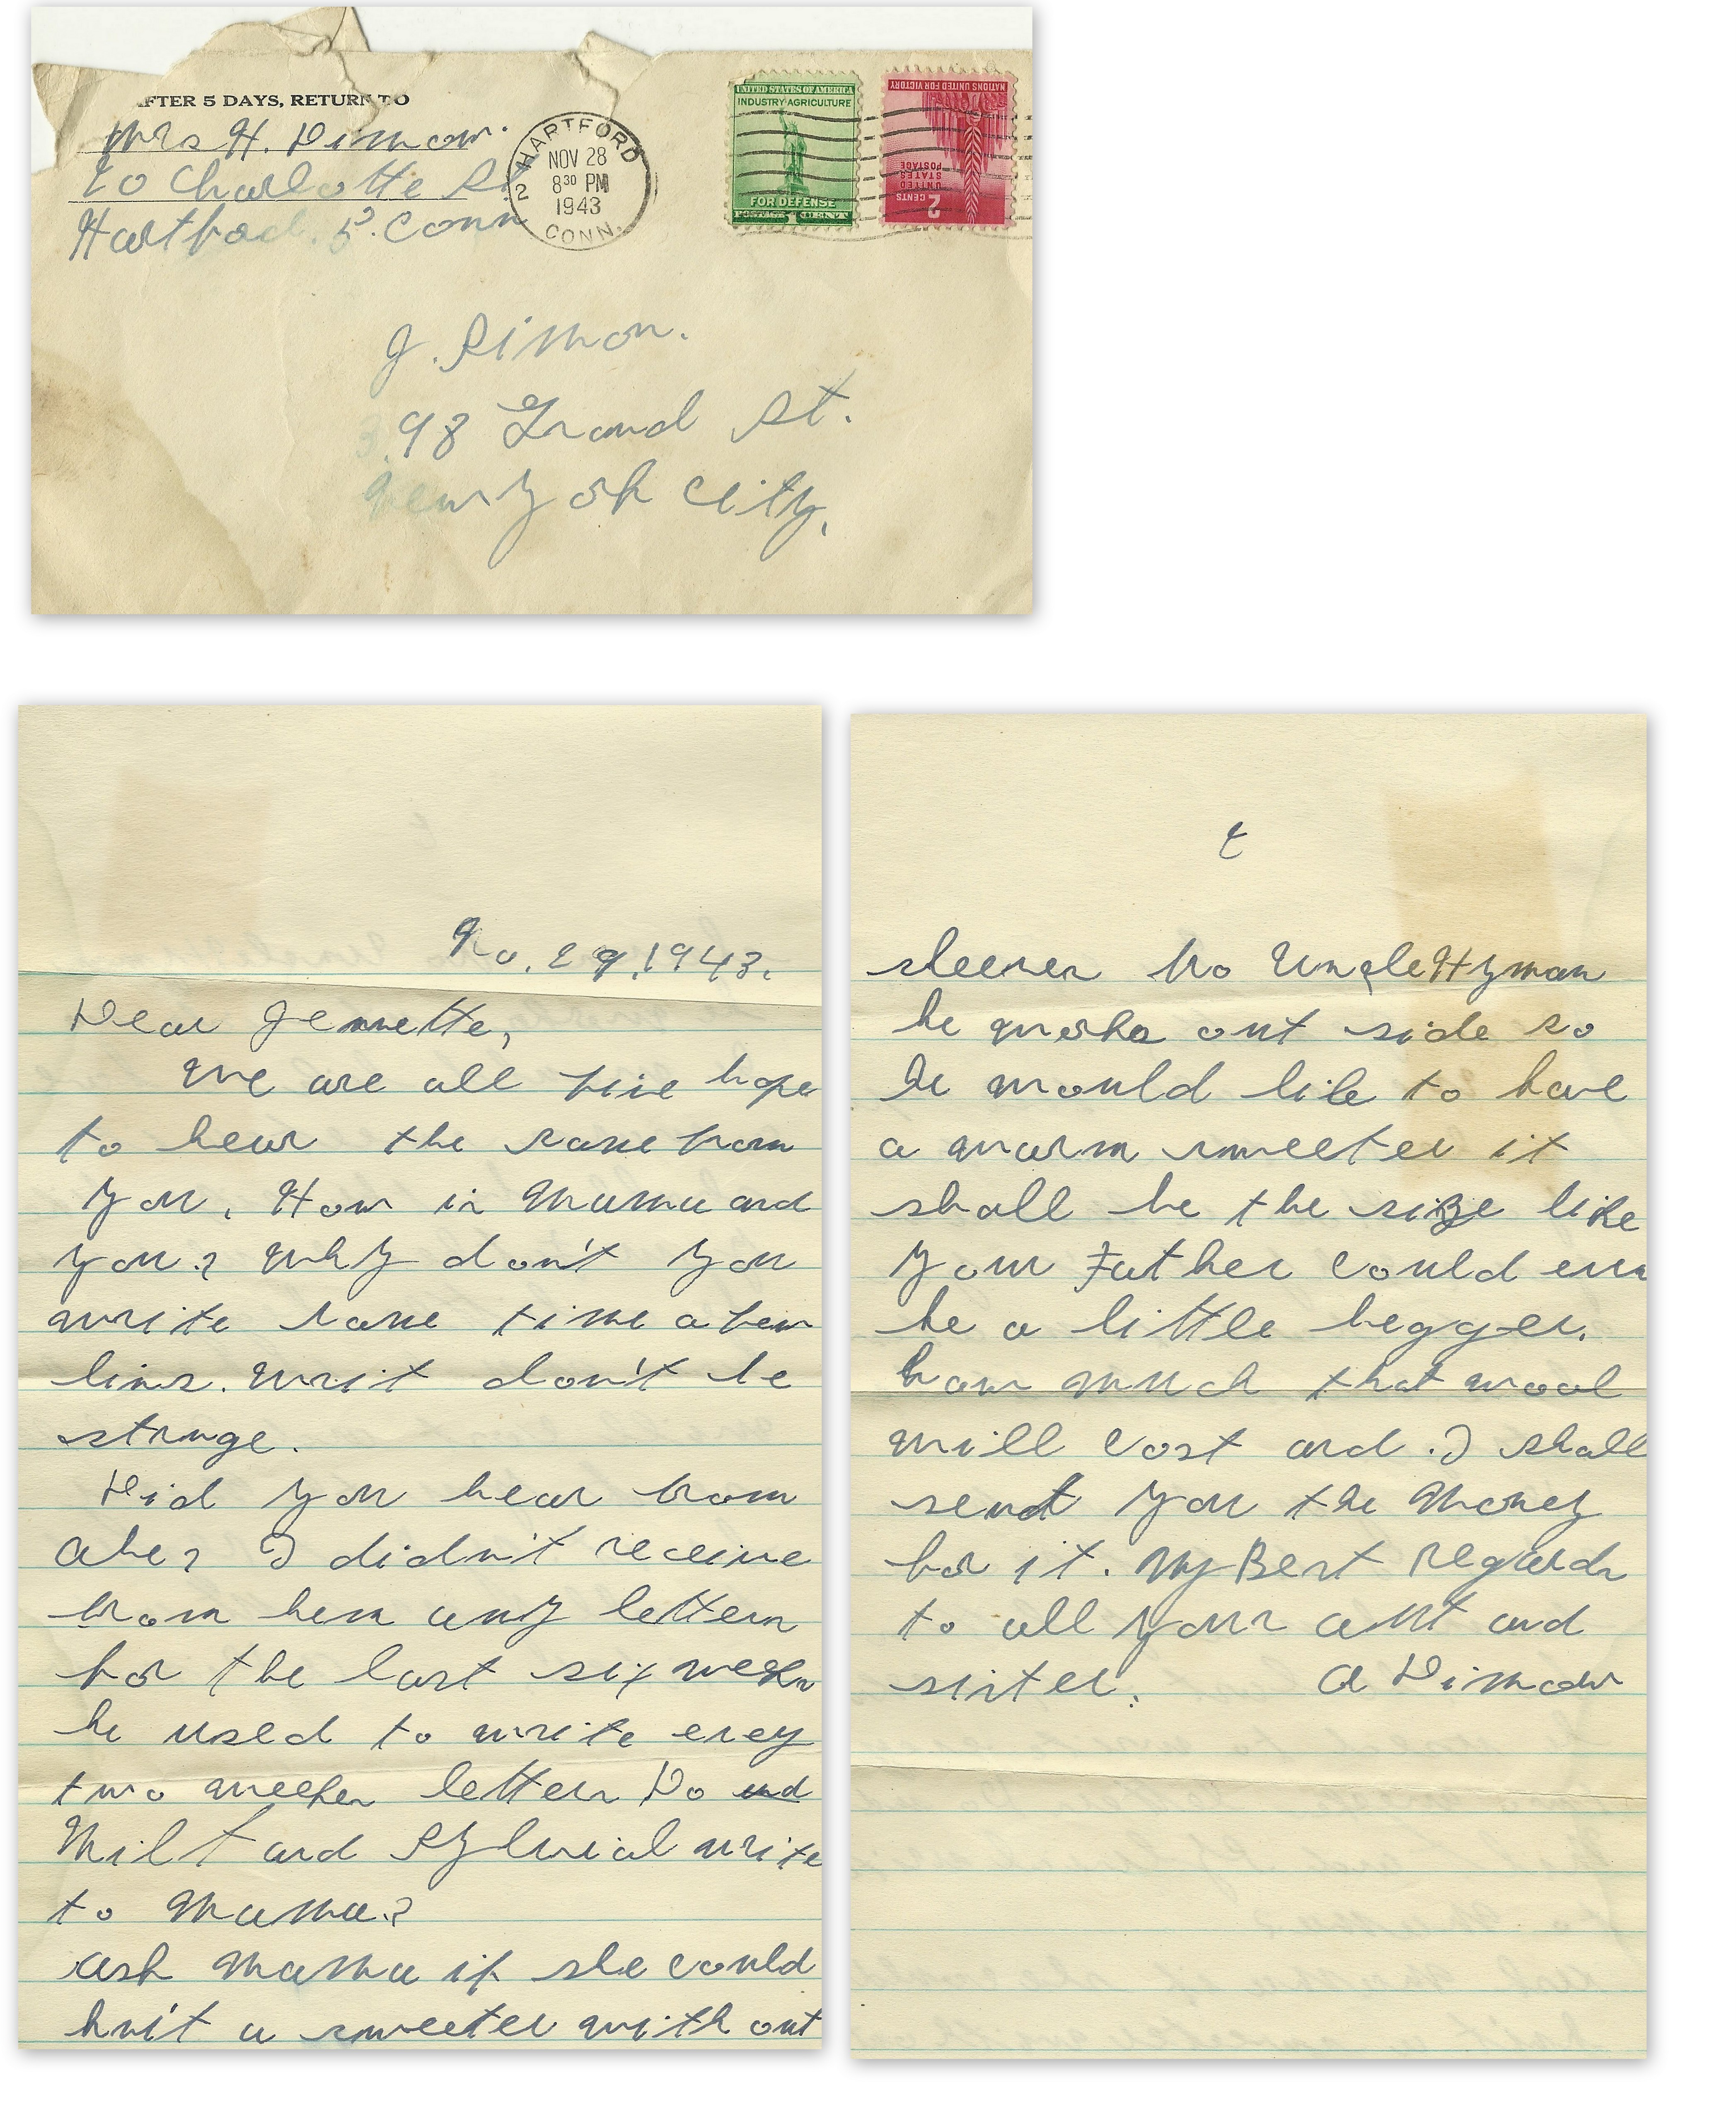 AFTER 5 DAYS, RETURN TO
Mrs H. Dimow.
20 Charlotte St
Hartford. 5. Conn
HARTFORD
NOV 28
8³⁰ PM
2
1943
CONN.
UNITED STATES OF AMERICA
INDUSTRY AGRICULTURE
FOR DEFENSE
POSTAGE 1 CENT
NATIONS UNITED FOR VICTORY
UNITED
STATES
POSTAGE
2
CENTS
J. Simon.
398 Grand St.
New York City.
No. 29, 1943.
Dear Jennette,
We are all fine hope
to hear the same from
you. How is Mama and
you? Why don't you
write some time a few
lins. Writ don't be
strange.
Did you hear from
Abe? I didn't receive
from hem any letters
for the last six weeks
he used to write evey
two weeks letters Do
Milt and Sylvial write
to Mama?
ask Mama if she could
knit a sweeter with out
2
sleeves to Uncle Hyman
he works out side so
he would like to have
a warm sweeter it
shall be the size like
your Father could even
be a little begger.
how much that wool
will cost and I shall
send you the Money
for it. My Best regards
to all your ant and
sister. A Dimow